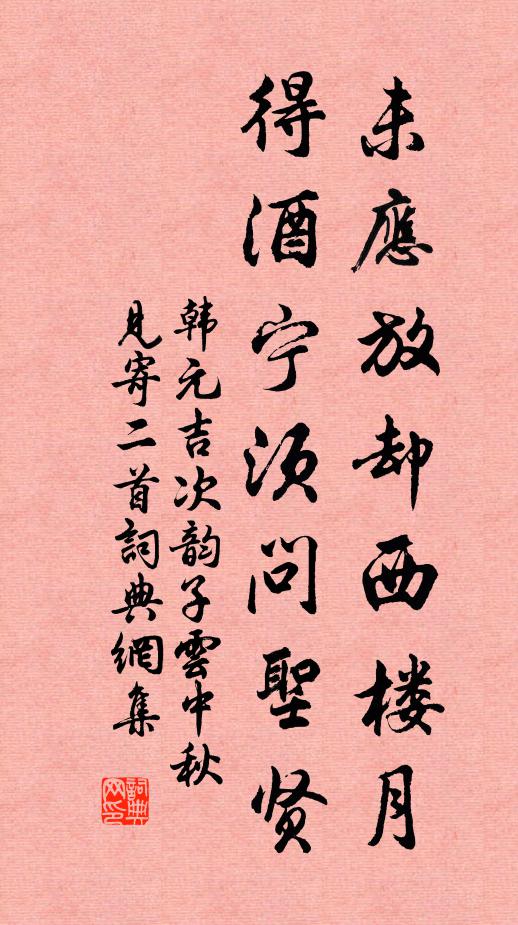 未應放却西楼月
得酒宁须问聖贤
韩元吉次韵子雲中秋
見寄二首詞典網集
詞典网印